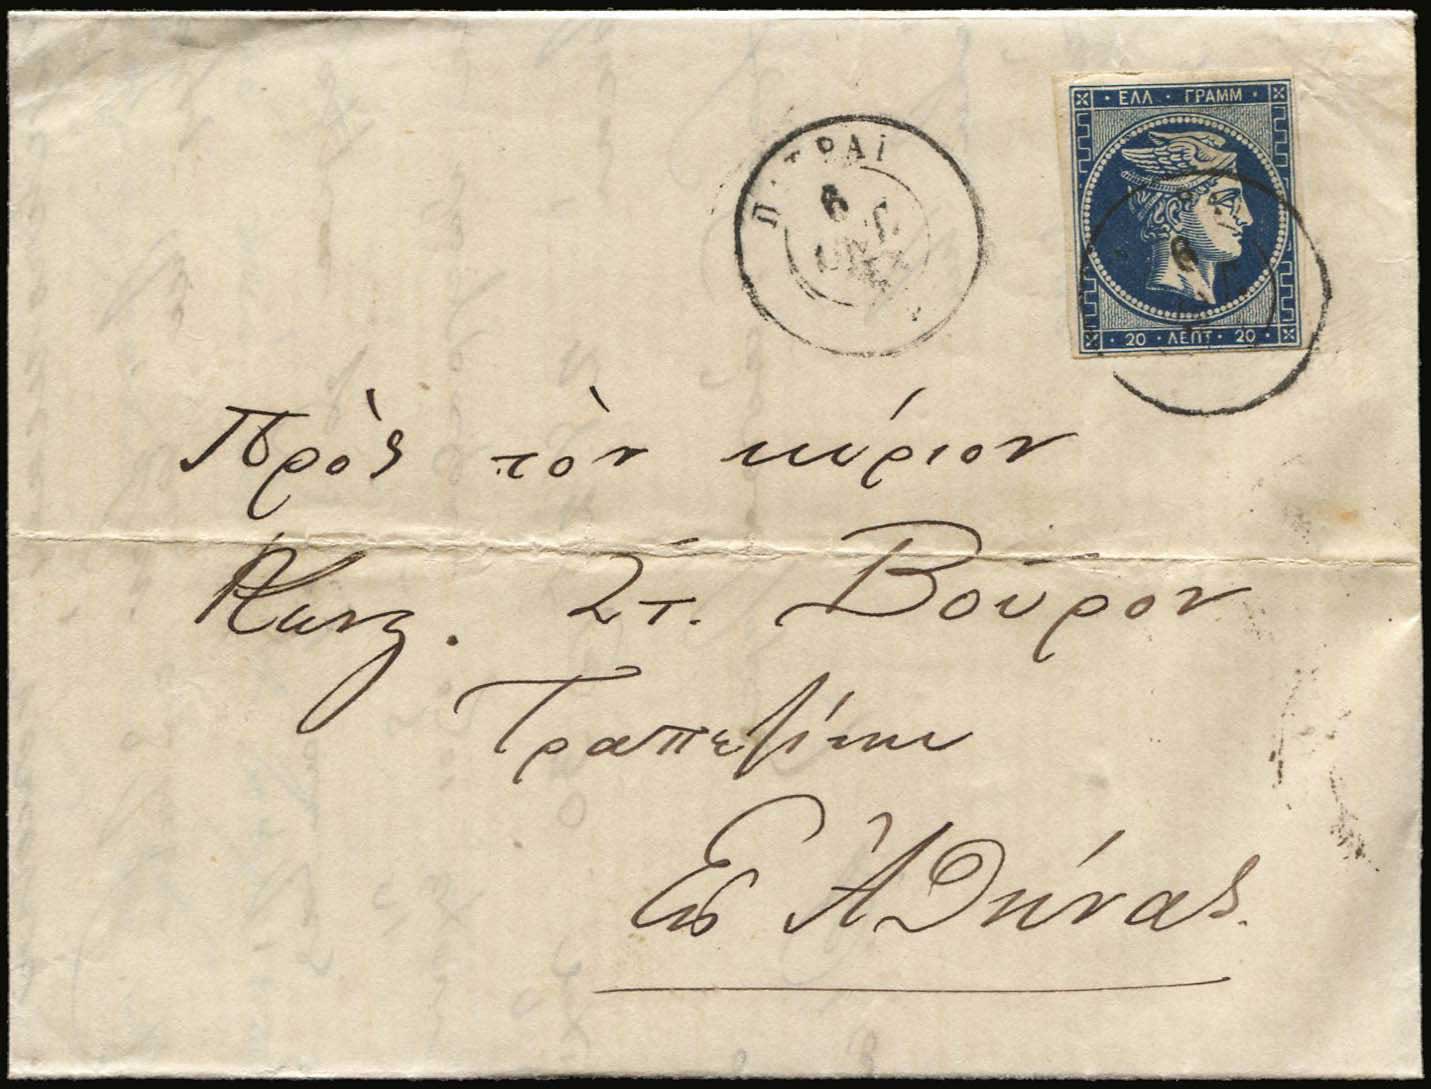 ΕΛΛ · ΓΡΑΜΜ
20 · ΛΕΠΤ · 20
6
Πρὸς τὸν κύριον
Κωνς. Στ. Βούρον
Τραπεζίτην
Εἰς Ἀθήνας.